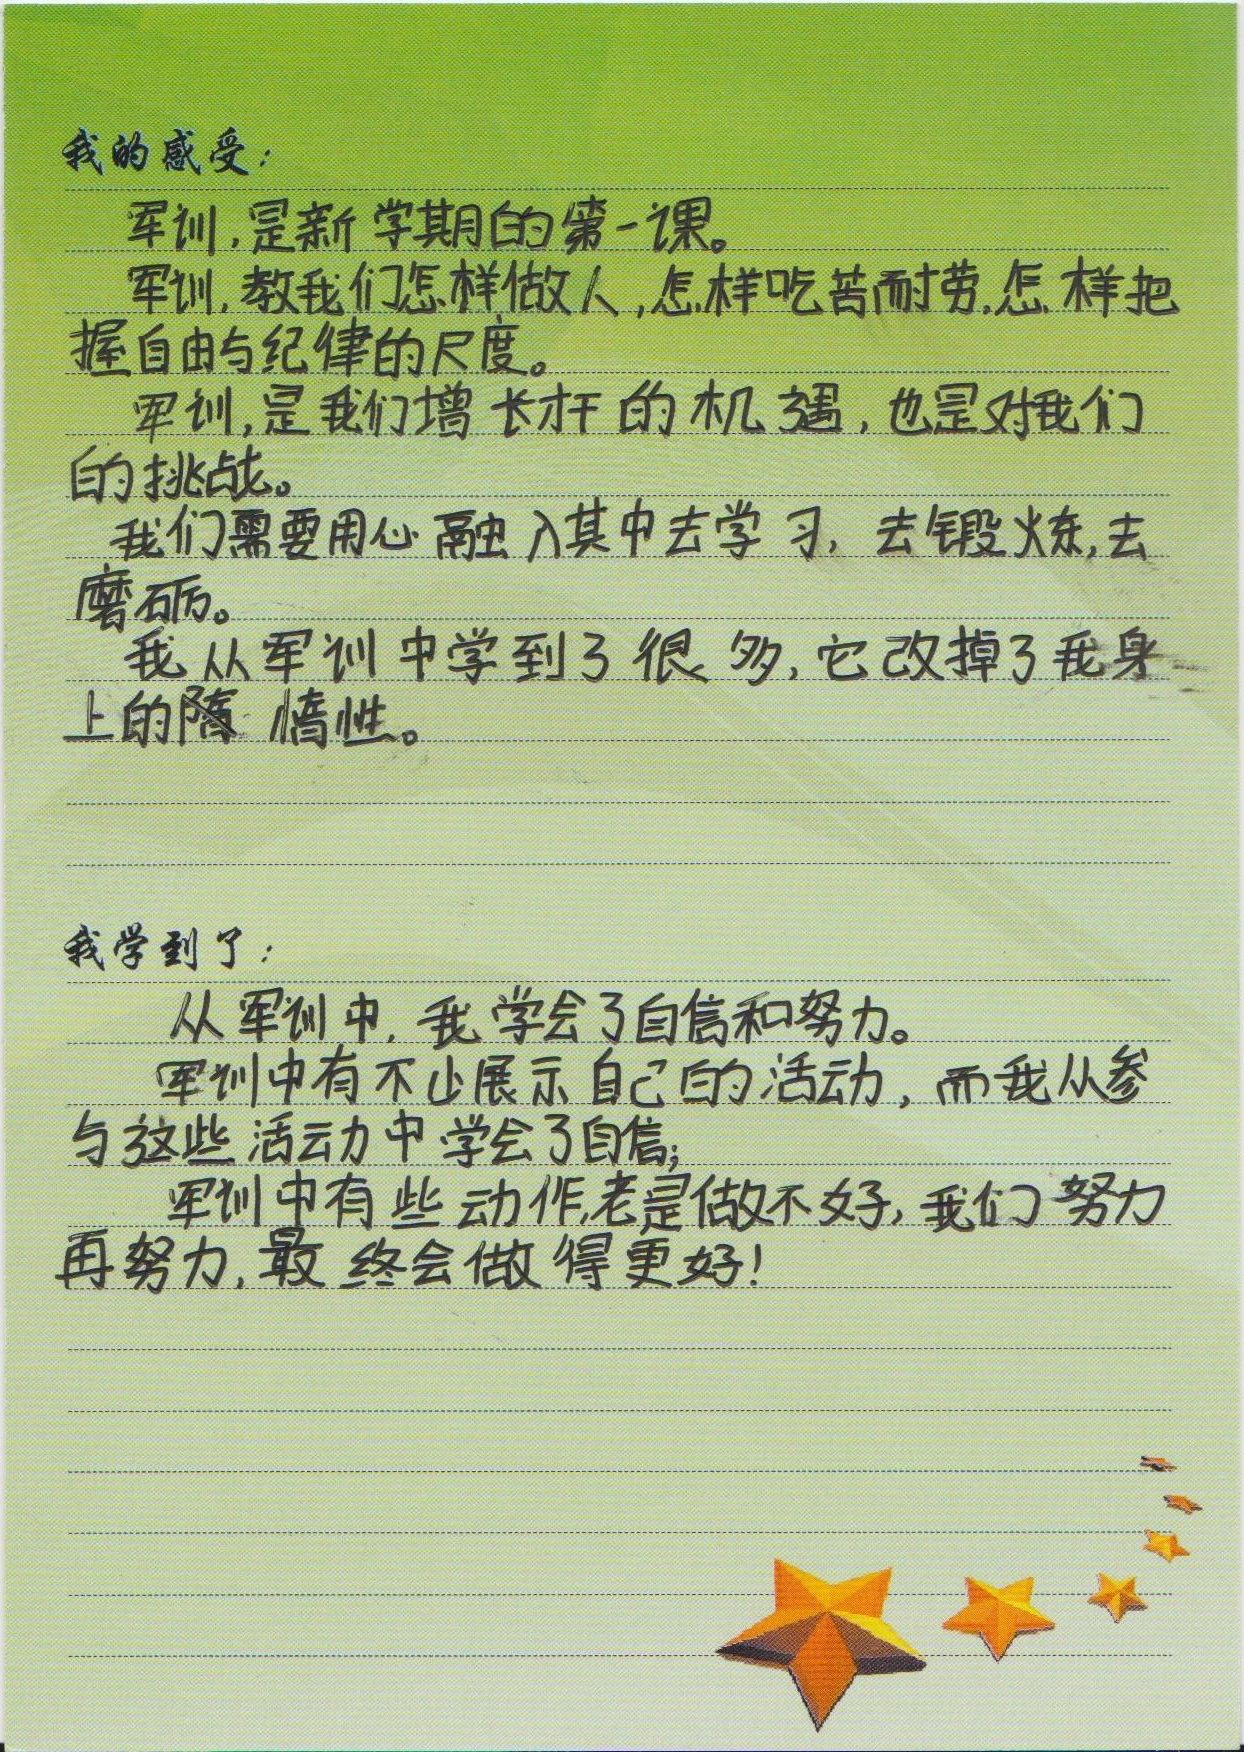 我的感受：
军训，是新学期的第一课。
军训，教我们怎样做人，怎样吃苦而耐劳，怎样把
握自由与纪律的尺度。
军训，是我们增长才干的机遇，也是对我们
的挑战。
我们需要用心融入其中去学习，去锻炼，去
磨砺。
我从军训中学到了很多，它改掉了我身
上的惰性。
我学到了：
从军训中，我学会了自信和努力。
军训中有不少展示自己的活动，而我从参
与这些活动中学会了自信；
军训中有些动作，老是做不好，我们努力
再努力，最终会做得更好！